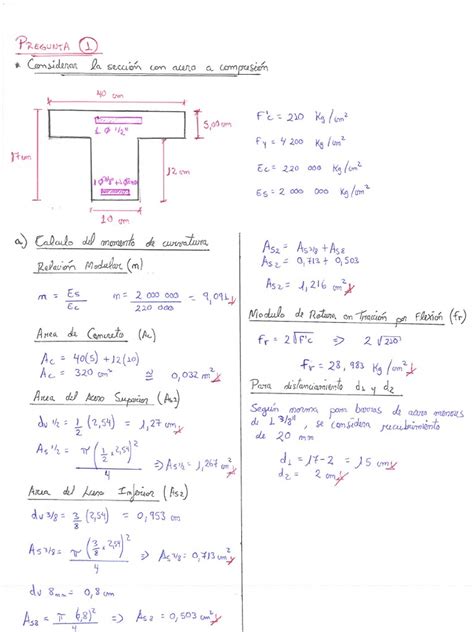 PREGUNTA 1
* Considerar la sección con acero a compresión
40 cm
1 Ø 1/2"
5,00 cm
17 cm
12 cm
1 Ø 3/8" + 1 Ø 8mm
10 cm
F'c = 210 Kg/cm²
Fy = 4 200 Kg/cm²
Ec = 220 000 Kg/cm²
Es = 2 000 000 Kg/cm²
a) Calculo del momento de curvatura
Relación Modular (n)
n = Es/Ec n = 2 000 000/220 000 = 9,091
Area de Concreto (Ac)
Ac = 40(5) + 12(10)
Ac = 320 cm² ≅ 0,032 m²
Area del Acero Superior (As1)
dv 1/2 = 1/2 (2,54) = 1,27 cm
As 1/2 = π(1/2 × 2,54)²/4 ⇒ As 1/2 = 1,267 cm²
Area del Acero Inferior (As2)
dv 3/8 = 3/8 (2,54) = 0,953 cm
As 3/8 = π(3/8 × 2,54)²/4 ⇒ As 3/8 = 0,713 cm²
dv 8mm = 0,8 cm
As8 = π (0,8)²/4 ⇒ As8 = 0,503 cm²
As2 = As3/8 + As8
As2 = 0,713 + 0,503
As2 = 1,216 cm²
Modulo de Rotura en Tracción por Flexión (fr)
fr = 2√F'c ⇒ 2√210
fr = 28,983 Kg/cm²
Para distanciamiento d1 y d2
Según norma, para barras de acero menores
de 1 3/8", se considera recubrimiento
de 20 mm
d1 = 17-2 = 15 cm
d2 = 2 cm